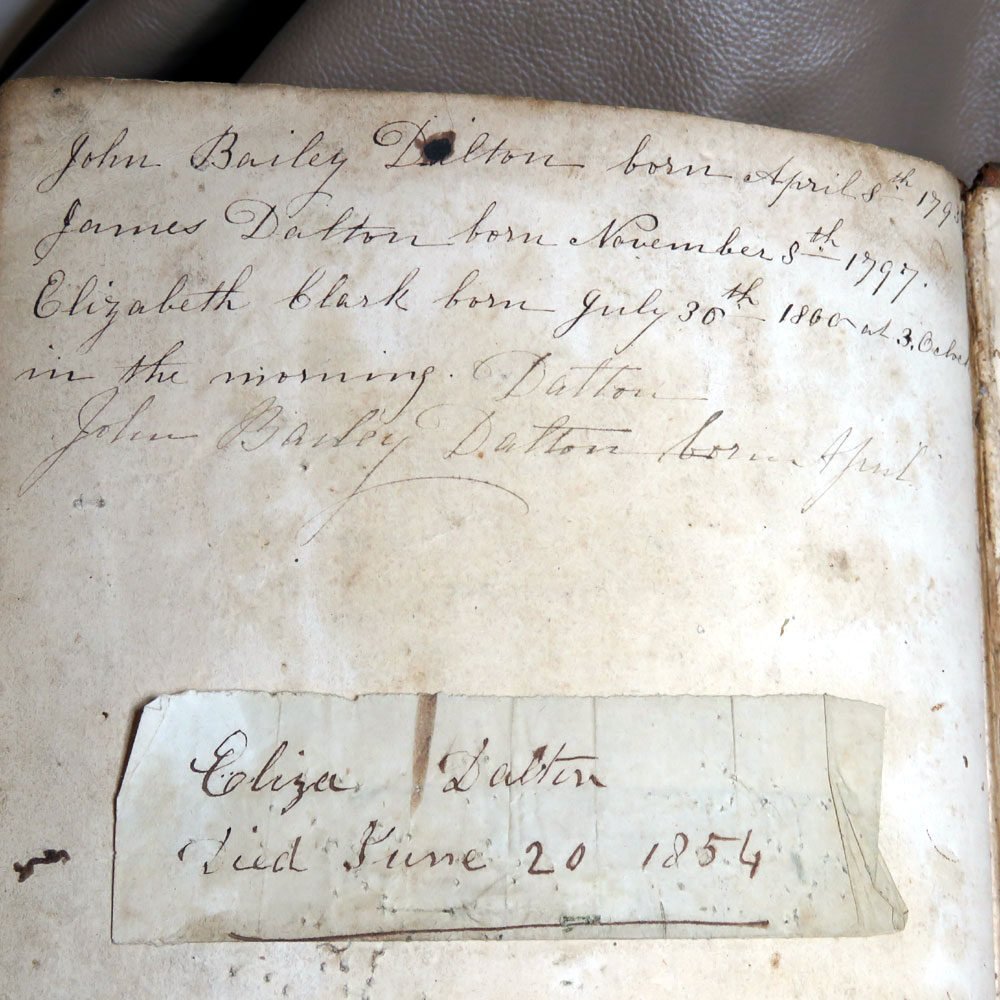 John Bailey Dalton born April 8th
James Dalton born November 8th 1797.
Elizabeth Clark born July 30th 1800 at 3. Oclock
in the morning. Dalton
John Bailey Dalton born April
Eliza Dalton
Died June 20 1854